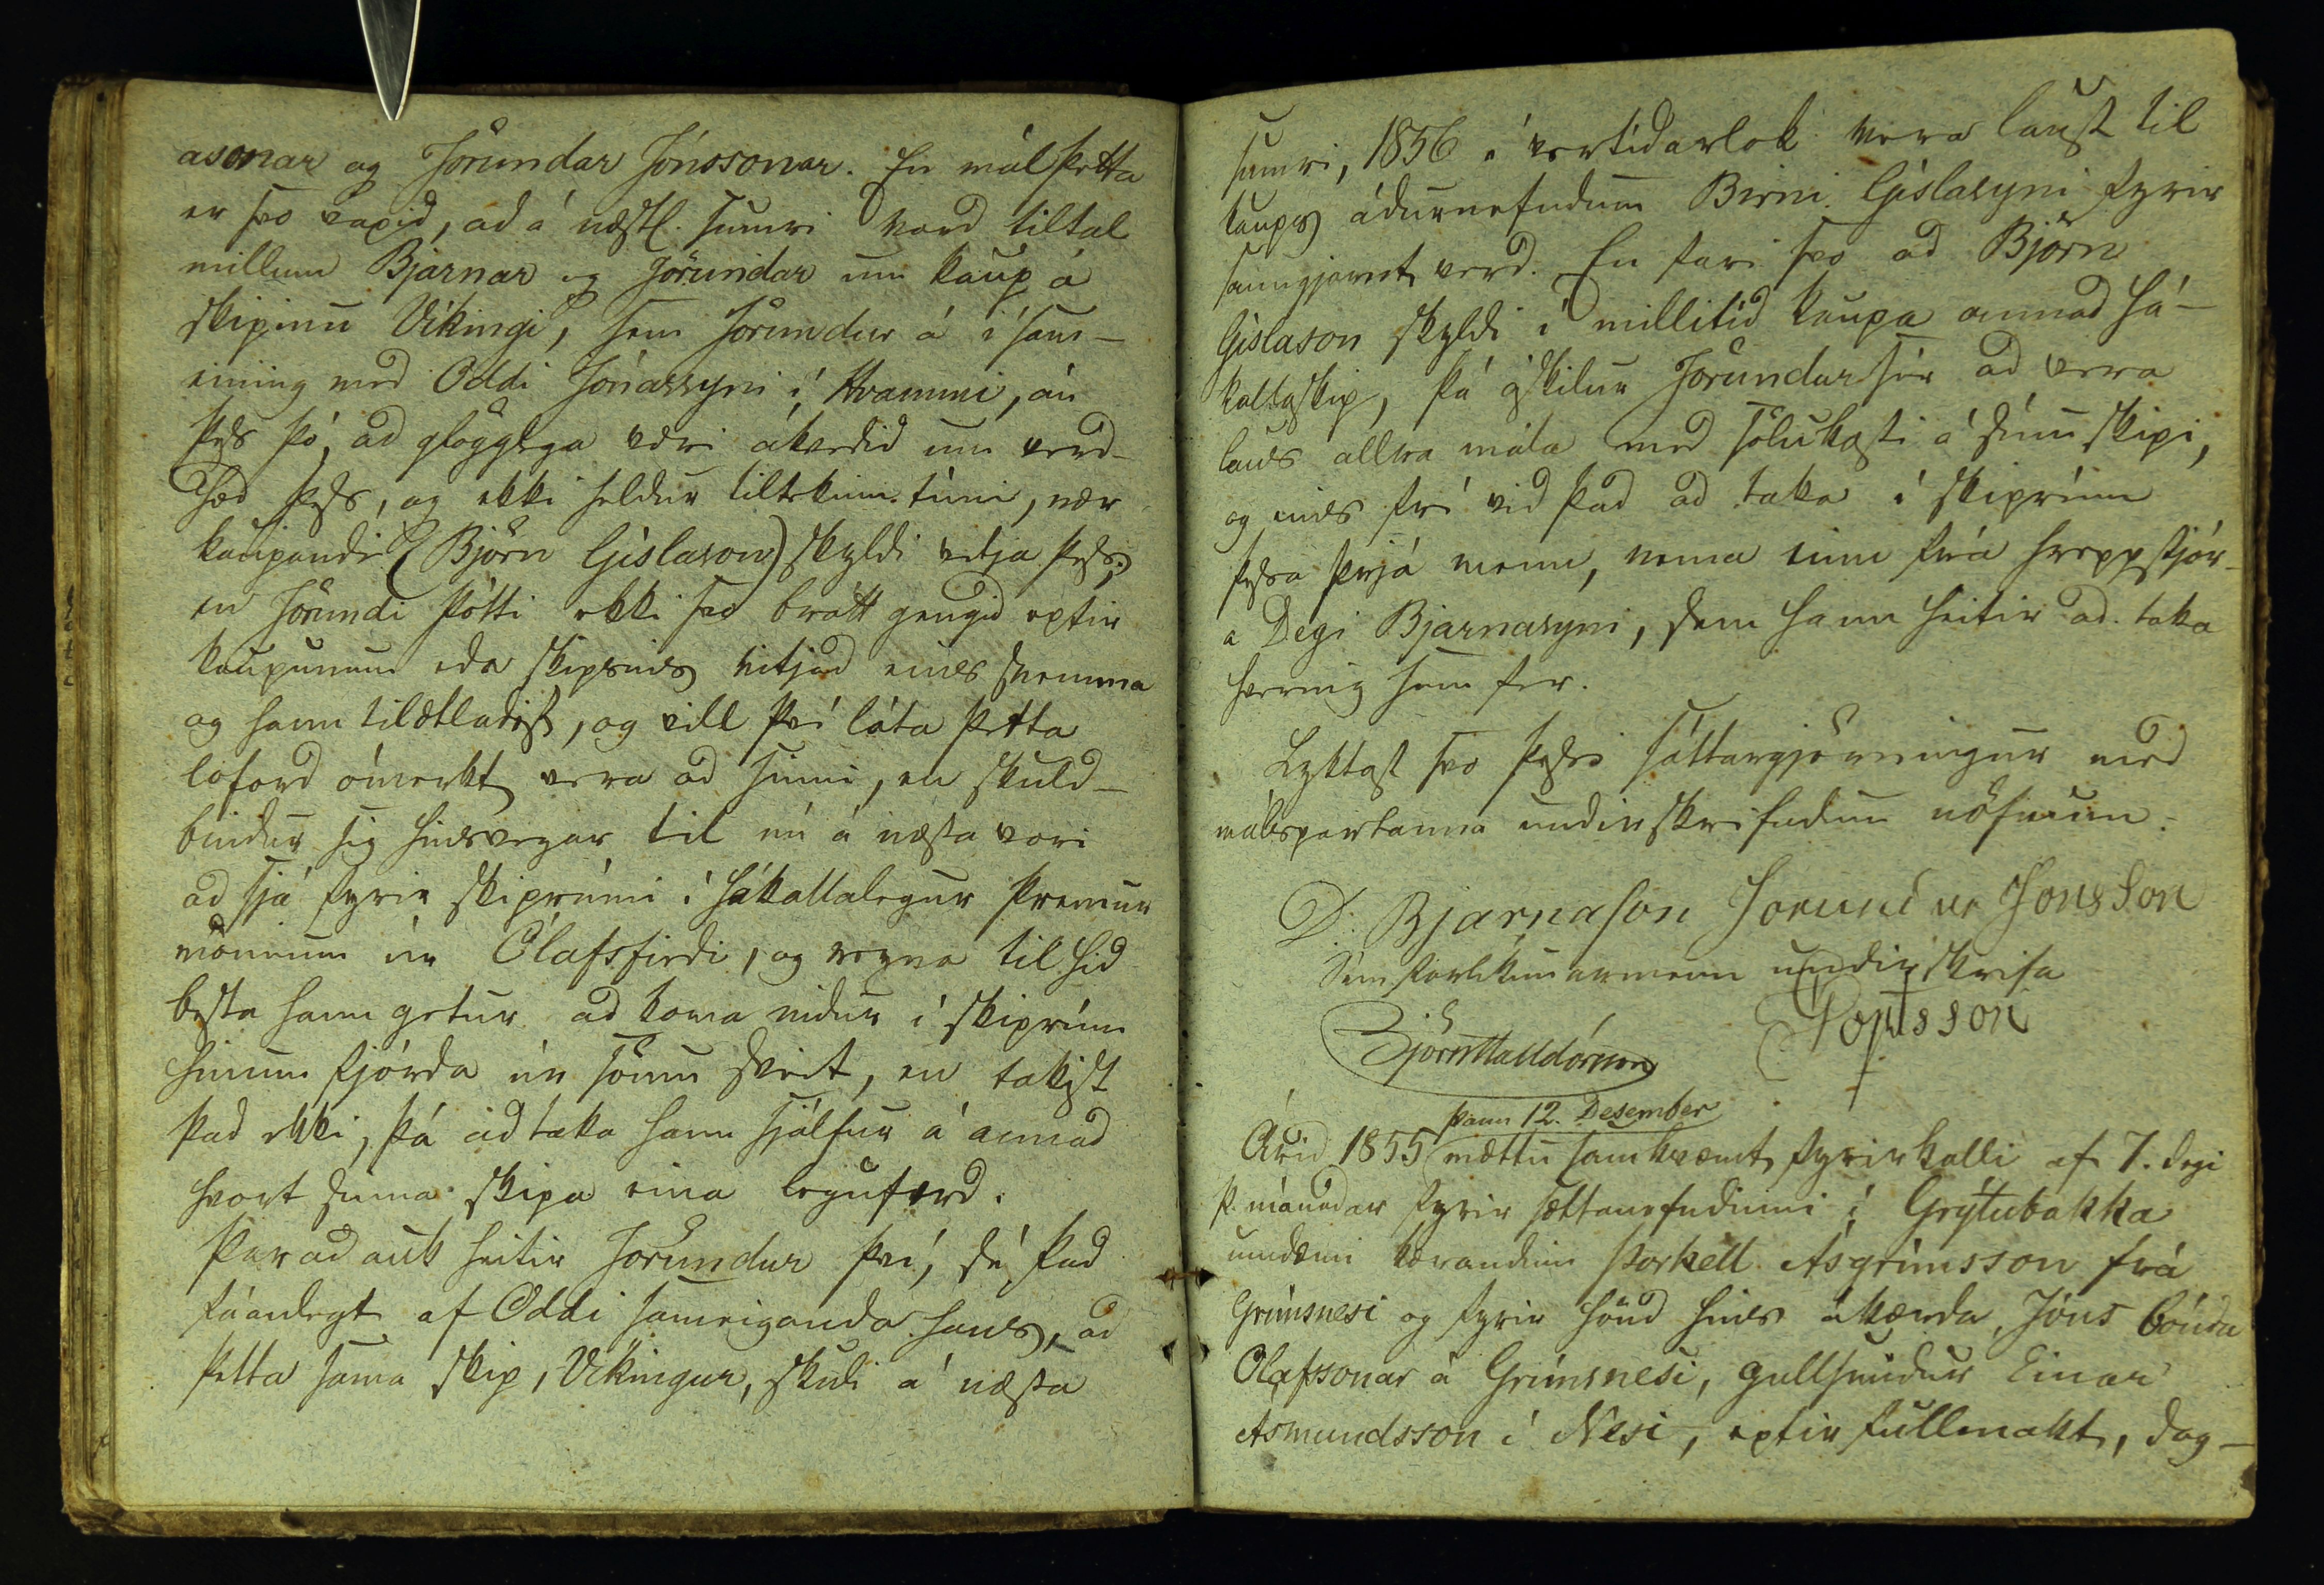 asonar og Jörundar Jónssonar. En mál þetta
er svo vaxið, að á næstl. sumri varð tiltal
millum Bjarnar og Jörundar um kaup á
skipinu Víkingi, sem Jörundur á í sam-
eining með Oddi Jónassyni í Hvammi, án
þess þó, að glögglega væri ákveðið um verð-
hæð þess, og ekki heldur tiltekinn tími, nær
kaupandi (Björn Gíslason) skyldi vitja þess;
en Jörundi þótti ekki svo brátt gengið eptir
kaupunum eða skipsins vitjað eins snemma
og hann tilætlaðist, og vill því láta þetta
loforð ómerkt vera að sinni, en skuld-
bindur sig hinsvegar til nú á næsta vori
að sjá fyrir skiprúmi í hákallalegur þremur
mönnum úr Ólafsfirði, og reyna til hið
besta hann getur að koma niður í skiprúm
hinum fjórða úr sömu sveit, en takist
það ekki, þá að taka hann sjálfur á annað
hvort sinna skipa eina leguferð.
Þar að auk heitir Jörundur því, sé það
fáanlegt af Oddi sameiganda hans, að
þetta sama skip, Víkingur, skuli á næsta
sumri, 1856 í vertíðarlok vera laust til
kaups áðurnefndum Birni Gíslasyni fyrir
sanngjarnt verð. En fari svo að Björn
Gíslason skyldi í millitíð kaupa annað há-
kallaskip, þá áskilur Jörundur sér að vera
laus allra mála með sölukosti á sínu skipi,
og eins frí við það að taka í skiprúm
þessa þrjá menn, nema einn frá hreppstjór-
a Degi Bjarnasyni, sem hann heitir að taka
hvernig sem fer.
Lyktast svo þessi sáttargjörningur með
málspartanna undirskrifuðum nöfnum.
D. Bjarnason Jörundur Jónsson
Sem forlíkunarmenn undirskrifa
Björn Halldórsson
þann 12. Desember
Árið 1855 mættu samkvæmt fyrirkalli af 7. degi
þ. mánaðar fyrir sættanefndinni í Grýtubakka
umdæmi kærandinn Þorkell Ásgrímsson frá
Grímsnesi og fyrir hönd hins ákærða, Jóns bónda
Olafssonar á Grímsnesi, gullsmiður Einar
Asmundsson í Nesi, eptir fullmakt, dag-